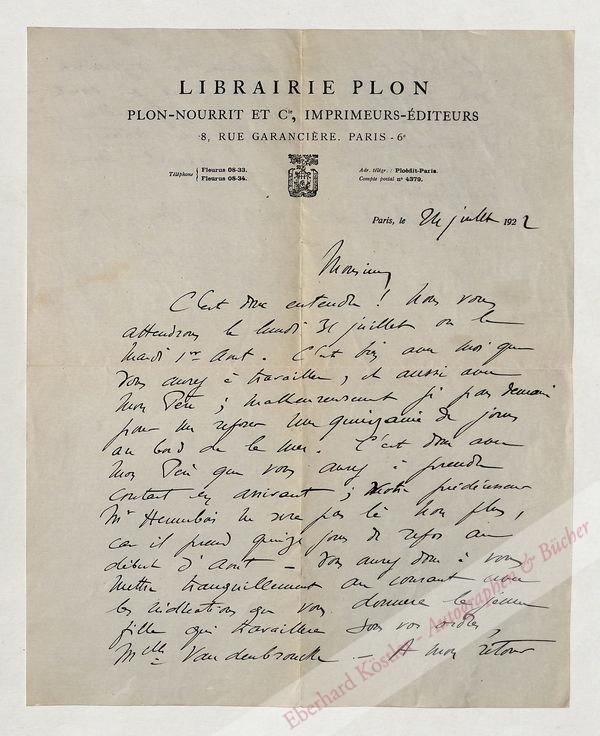 LIBRAIRIE PLON
PLON-NOURRIT ET Cie, IMPRIMEURS-ÉDITEURS
8, RUE GARANCIÈRE. PARIS - 6e
Téléphone { Fleurus 08-33.
Fleurus 08-34.
Adr. télégr. : Ploédit-Paris.
Compte postal n° 4379.
Paris, le 24 juillet 1922
Monsieur,
C'est donc entendu ! Nous vous
attendrons le lundi 31 juillet ou le
mardi 1er Aout. C'est bien avec moi que
vous aurez à travailler, et aussi avec
mon Père ; malheureusement je pars demain
pour me reposer une quinzaine de jours
au bord de la mer. C'est donc avec
mon Père que vous aurez à prendre
contact en arrivant ; votre prédécesseur
Mr ne sera pas là non plus,
car il prend quinze jours de repos au
début d'Aout - Vous aurez donc à vous
mettre tranquillement au courant avec
les indications que vous donnera la jeune
fille qui travaillera sous vos ordres,
Melle Vandenbroucke. - A mon retour
Eberhard Köstler - Autographen & Bücher